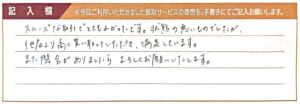 記入欄 ※今回ご利用いただきました買取サービスの感想を、手書きにてご記入お願いします。
スムーズな取引でとてもよかったです。状態の悪いものでしたが、
他店より高く買い取っていただき、満足しています。
また機会がありましたら よろしくお願いいたします。